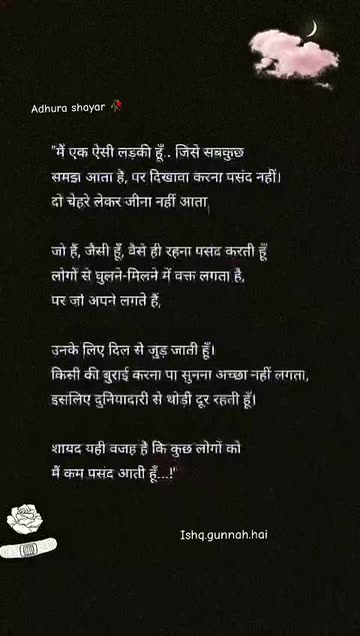 Adhura shayar 🥀
"मैं एक ऐसी लड़की हूँ.. जिसे सबकुछ
समझ आता है, पर दिखावा करना पसंद नहीं।
दो चेहरे लेकर जीना नहीं आता,
जो हैं, जैसी हूँ, वैसे ही रहना पसंद करती हूँ
लोगों से घुलने-मिलने में वक्त लगता है,
पर जो अपने लगते हैं,
उनके लिए दिल से जुड़ जाती हूँ।
किसी की बुराई करना पा सुनना अच्छा नहीं लगता,
इसलिए दुनियादारी से थोड़ी दूर रहती हूँ।
शायद यही वजह है कि कुछ लोगों को
मैं कम पसंद आती हूँ...!"
Ishq.gunnah.hai